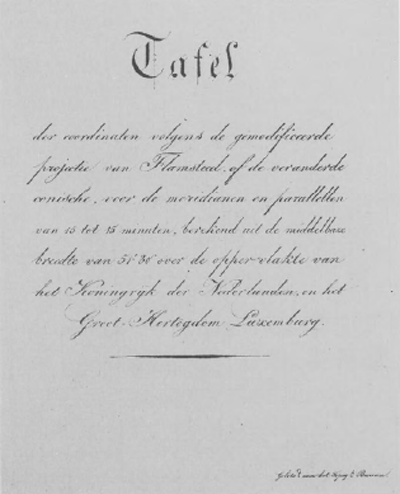 Tafel
der coordinaten volgens de gemodificeerde
projectie van Flamsteed, of de veranderde
conische, voor de meridianen en parallellen
van 15 tot 15 minuten, berekend uit de middelbare
breedte van 51° 30' over de oppervlakte van
het Koningryk der Nederlanden, en het
Groot-Hertogdom Luxemburg.